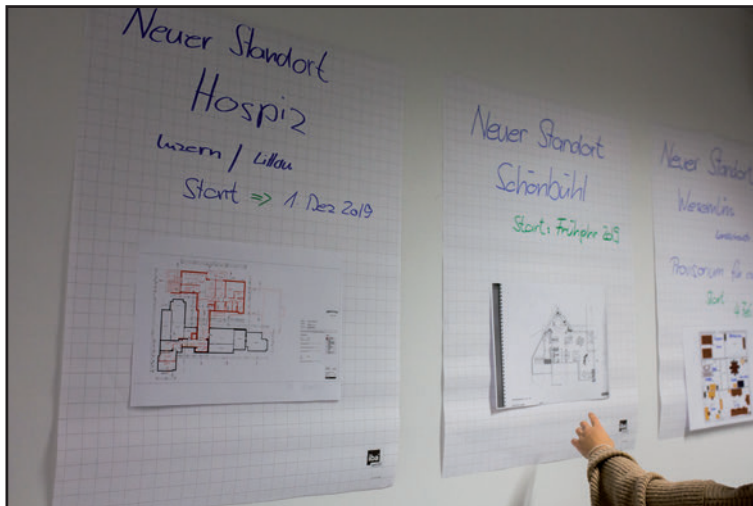 Neuer Standort
Hospiz
Luzern / Littau
Start => 1. Dez 2019
iba
Neuer Standort
Schönbühl
Start: Frühjahr 2019
iba
Neuer Standort
Wesemlin
Provisorium für
Start